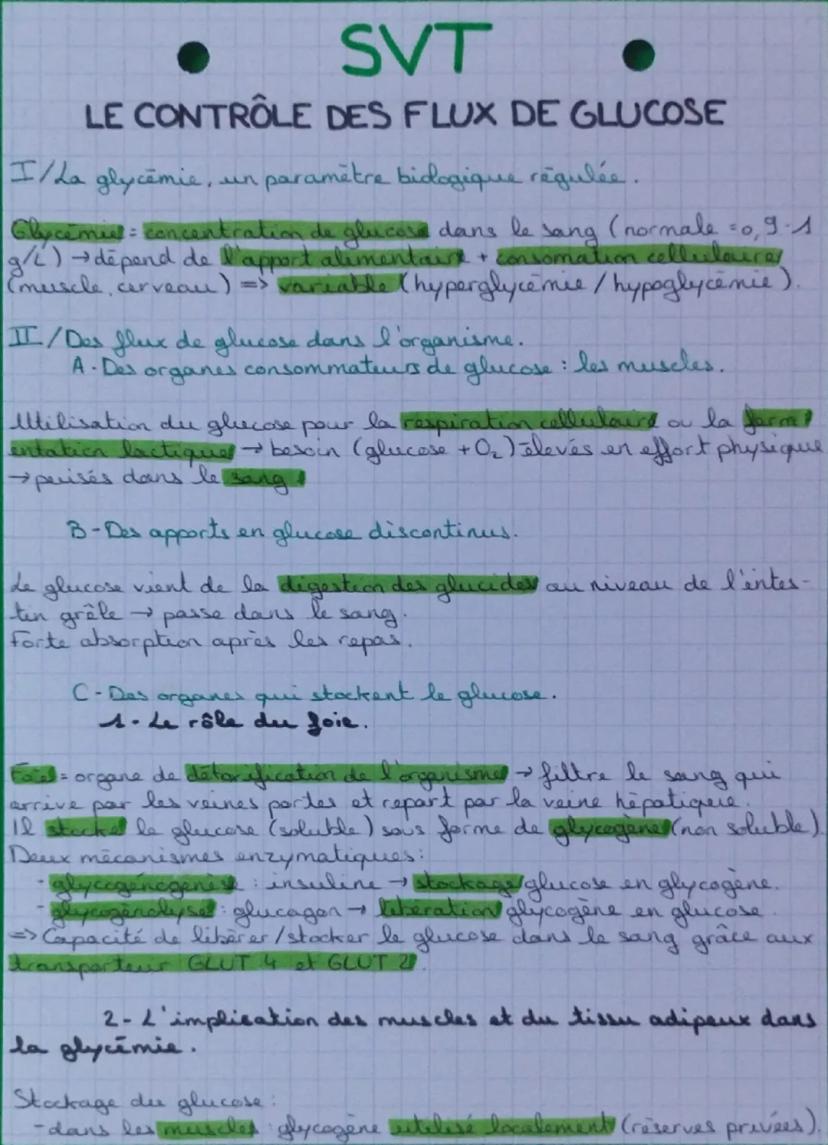 SVT
LE CONTRÔLE DES FLUX DE GLUCOSE
I/La glycémie, un paramètre biologique régulée.
Glycémie = concentration de glucose dans le sang (normale = 0,9-1
g/L) → dépend de l'apport alimentaire + consomation cellulaire
(muscle, cerveau) => variable (hyperglycémie / hypoglycémie).
II/Des flux de glucose dans l'organisme.
A-Des organes consommateurs de glucose : les muscles.
Utilisation du glucose pour la respiration cellulaire ou la ferm
entation lactique → besoin (glucose + O₂) élevés en effort physique
→ puisés dans le sang.
B-Des apports en glucose discontinus.
Le glucose vient de la digestion des glucides au niveau de l'intes-
tin grêle → passe dans le sang.
Forte absorption après les repas.
C-Des organes qui stockent le glucose.
1-Le rôle du foie.
Foie = organe de détoxification de l'organisme → filtre le sang qui
arrive par les veines portes et repart par la veine hépatique.
Il stocke le glucose (soluble) sous forme de glycogène (non soluble).
Deux mécanismes enzymatiques :
-glycogénogenèse : insuline → stockage glucose en glycogène.
-glycogénolyse : glucagon → libération glycogène en glucose.
=> Capacité de libérer/stocker le glucose dans le sang grâce aux
transporteur GLUT 4 et GLUT 2.
2-L'implication des muscles et du tissu adipeux dans
la glycémie.
Stockage du glucose :
-dans les muscles : glycogène utilisé localement (réserves privées).